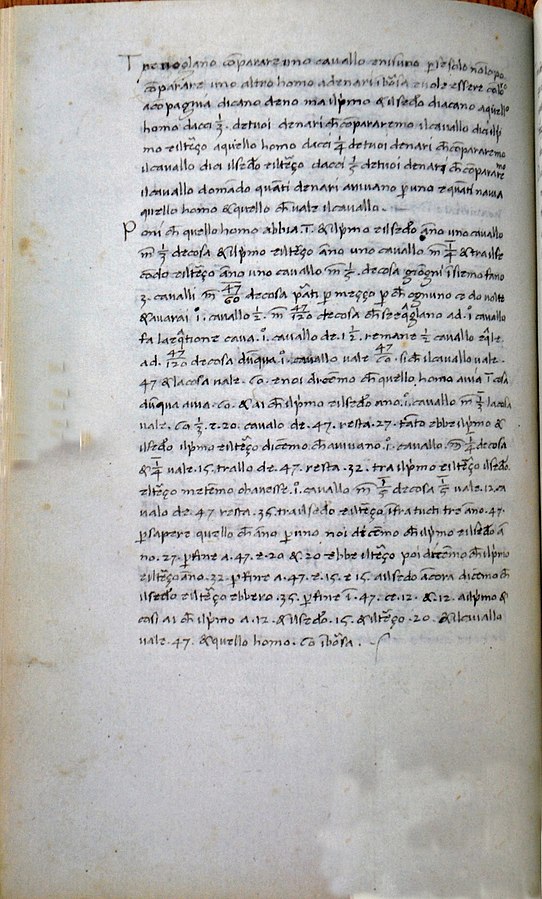 Tre voglano cōparare uno cavallo e nisuno p se solo nō lo po
cōparare uno altro homo a denari ī borsa e vole essere cōloro
a cōpagnia dicano deno ma il pmo & il sedo diacano aquello
homo dacci 1/3 . de tuoi denari ch cōpararemo il cavallo dici il pi
mo e il tēço a quello homo dacci 1/4 de tuoi denari ch cōpararemo
il cavallo dici il sedo e il tēço dacci 1/5 de tuoi denari ch cōparare mo
il cavallo domado quāti denari avivano p uno e quāti navia
quello homo & quello ch vale il cavallo .
Poni ch quello homo abbia . 1̄ . & il pmo e il sedo āno uno cavallo
m̄ 1/3 de cosa & il pmo e il tēço āno uno cavallo m̄ 1/4 & tra il se
codo e il tēço āno uno cavallo m̄ 1/5 . de cosa giōgni īsiemo fano
3 . cavalli m̄ 47/60 de cosa pāti p meçço p ch ognuno ce do volte
& avarai .i. cavallo 1/2 . m̄ 47/120 de cosa ch se eqglano ad .i. cavallo
fa la reqtione cava .i. cavallo de . 1 1/2 . remane 1/2 cavallo eqle .
ad . 47/120 de cosa dūqua .i. cavallo vale 47/60 . si ch il cavallo vale .
47 & la cosa vale . 60 . e noi dicēmo ch quello homo avia 1̄ cosa
dūqua avia . 60 . & ai ch il pmo e il sedo āno .i. cavallo m̄ 1/3 la cosa
vale . 60 1/3 . e . 20 . cavalo de . 47 . resta . 27 . tāto ebbe il pmo &
il sedo il pmo e il tēço dicēmo ch avivano .i. cavallo . m̄ 1/4 de cosa
& 1/4 vale . 15 . trallo de . 47 . resta . 32 . tra il pmo e il tēço il sedo .
e l tēço metēmo ch avesse .i. cavallo m̄ 1/5 de cosa 1/5 vale . 12 . ca
valo de . 47 resta . 35 . tra il sedo e il tēço .i. fra tucti tre āno . 47 .
p sapere quello ch āno p uno noi dicēmo ch il pmo e il sedo ā
no . 27 . p fine a . 47 . e . 20 & 20 ebbe il tēço poi dicēmo ch il pmo
e il tēço āno . 32 . p fine a . 47 . e . 15 . e 15 . a il sedo ācora dicēmo ch
il sedo e il tēço ebbero . 35 . p fine ī . 47 . ce . 12 . & . 12 . a il pmo &
cosi ai ch il pmo a . 12 . & il sedo . 15 . & il tēço . 20 . & il cavallo
vale . 47 . & quello homo . 60 ī borsa .